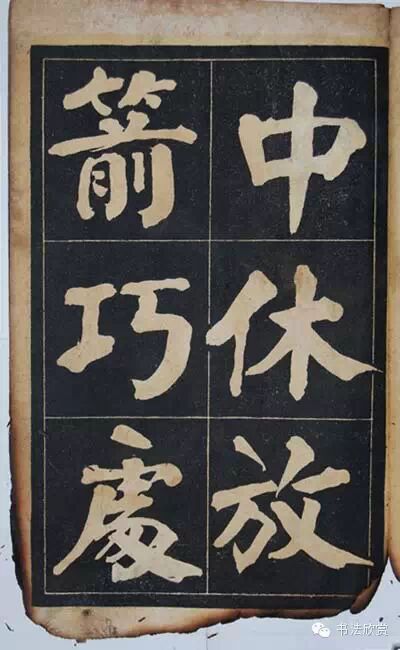 中休放
箭巧處
书法欣赏